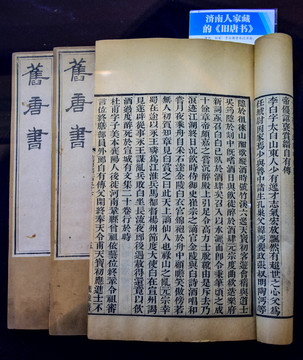 濟南人家藏
的《旧唐书》
舊唐書
舊唐書
自有傳
李白字太白山東人少有逸才志氣宏放飄然有超世之心父爲
任城尉因家焉少與魯中諸生孔巢父韓沔裴政張叔明陶沔等
隱於徂徠山酣歌縱酒時號竹溪六逸天寶初客遊會稽與道士
吳筠隱於剡中既嗜酒日與飲徒醉於酒肆玄宗度曲欲造樂府
新詞亟召白白已臥於酒肆矣召入以水灑面即令秉筆頃之成
十餘章帝頗嘉之嘗沉醉殿上引足令高力士脫靴由是斥去乃
浪迹江湖終日沉飲時侍御史崔宗之謫官金陵與白詩酒唱和
嘗月夜乘舟自采石達金陵白衣宮錦袍於舟中顧瞻笑傲傍若
無人初賀知章見白賞之曰此天上謫仙人也祿山之亂元宗幸
蜀在途以永王璘爲江淮兵馬都督揚州節度大使白在宣州謁
見遂辟從事永王謀亂兵敗白坐長流夜郎後遇赦得還竟以飲
酒過度醉死於宣城有文集二十卷行於時
杜甫字子美本襄陽人後徙河南鞏縣曾祖依藝位終鞏令祖審
言位終膳部員外郎自有傳父閑終奉天令甫天寶初應進士不